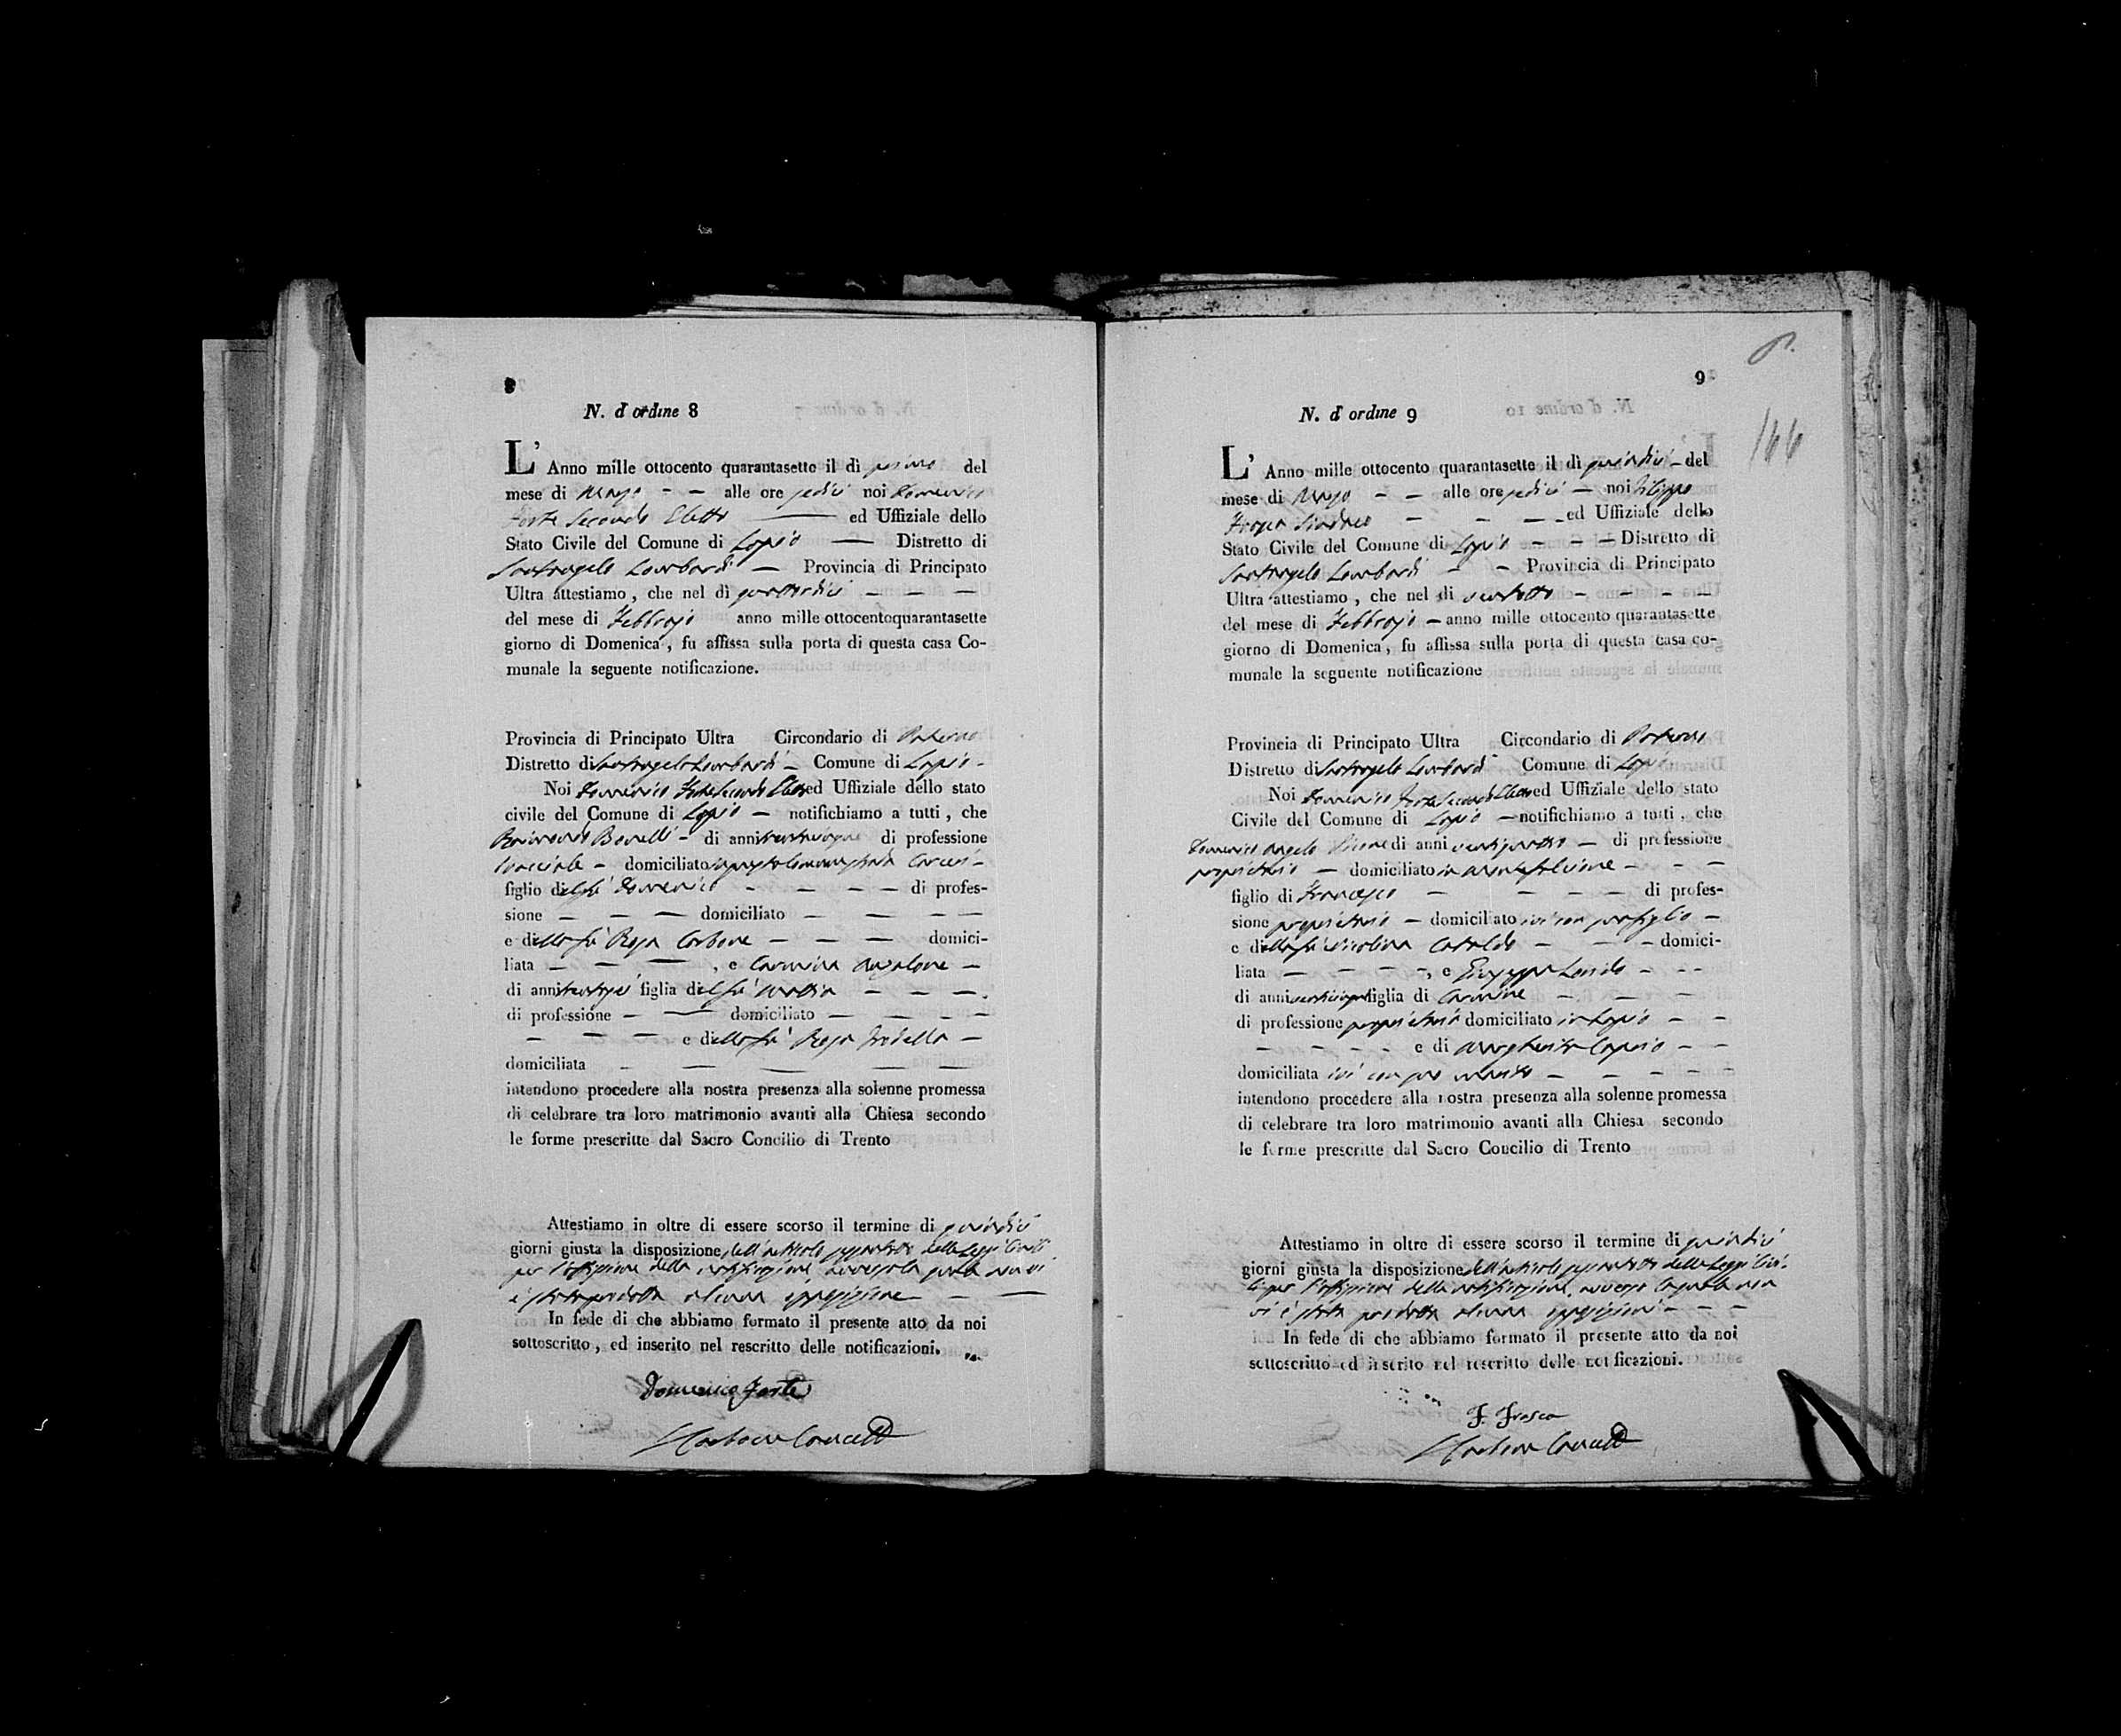 8
N. d'ordine 8
L' Anno mille ottocento quarantasette il dì primo del
mese di Marzo - - alle ore sedici noi Domenico
Forte Secondo Eletto — ed Uffiziale dello
Stato Civile del Comune di Lapio — Distretto di
Santangelo Lombardi — Provincia di Principato
Ultra attestiamo, che nel dì quattordici — — —
del mese di Febbrajo anno mille ottocentoquarantasette
giorno di Domenica, fu affissa sulla porta di questa casa Co-
munale la seguente notificazione.
Provincia di Principato Ultra Circondario di Paterno
Distretto di Santangelo Lombardi — Comune di Lapio -
Noi Domenico Forte Secondo Eletto ed Uffiziale dello stato
civile del Comune di Lapio — notifichiamo a tutti, che
di anni di professione
Bracciale — domiciliato in questo Comune strada Carceri -
figlio del fù Domenico - — — — di profes-
sione — — — domiciliato — — — —
e della fù Rosa Carbone — — — domici-
liata — — — , e Carmina Anzalone —
di anni figlia del fù Mattia — — —.
di professione — — domiciliato — — — —
— — — e della fù Rosa —
domiciliata — — — — —
intendono procedere alla nostra presenza alla solenne promessa
di celebrare tra loro matrimonio avanti alla Chiesa secondo
le forme prescritte dal Sacro Concilio di Trento
Attestiamo in oltre di essere scorso il termine di quindici
giorni giusta la disposizione dell'articolo sessantotto delle Leggi Civili
per l'affissione della notificazione, avverso la quale non vi
è stata prodotta alcuna opposizione — —
In fede di che abbiamo formato il presente atto da noi
sottoscritto, ed inserito nel rescritto delle notificazioni.
Domenico Forte
9
166
N. d'ordine 9
L' Anno mille ottocento quarantasette il dì quindici — del
mese di Marzo - — alle ore sedici — noi Filippo
Sindaco — — — ed Uffiziale dello
Stato Civile del Comune di Lapio — — — Distretto di
Santangelo Lombardi — — Provincia di Principato
Ultra attestiamo, che nel dì ventotto — — — —
del mese di Febbrajo — anno mille ottocento quarantasette
giorno di Domenica, fu affissa sulla porta di questa casa co-
munale la seguente notificazione
Provincia di Principato Ultra Circondario di Paterno
Distretto di Santangelo Lombardi Comune di Lapio
Noi Domenico Forte Secondo Eletto ed Uffiziale dello stato
Civile del Comune di Lapio — notifichiamo a tutti, che
Domenico Angelo di anni ventiquattro — di professione
proprietario — domiciliato in Montefalcione — — —
figlio di Francesco — — — — di profes-
sione proprietario — domiciliato ivi con suo figlio —
e della fù Nicolina Cataldo — — — domici-
liata — — — —, e Giuseppa — - -
di anni figlia di Carmine — — —
di professione proprietario domiciliato in Lapio — —
— — — — e di Margherita — —
domiciliata ivi con suo marito — — — — —
intendono procedere alla nostra presenza alla solenne promessa
di celebrare tra loro matrimonio avanti alla Chiesa secondo
le forme prescritte dal Sacro Concilio di Trento
Attestiamo in oltre di essere scorso il termine di quindici
giorni giusta la disposizione dell'articolo sessantotto delle Leggi Civi-
li per l'affissione della notificazione, avverso la quale non
vi è stata prodotta alcuna opposizione — — —
In fede di che abbiamo formato il presente atto da noi
sottoscritto ed inserito nel rescritto delle notificazioni.